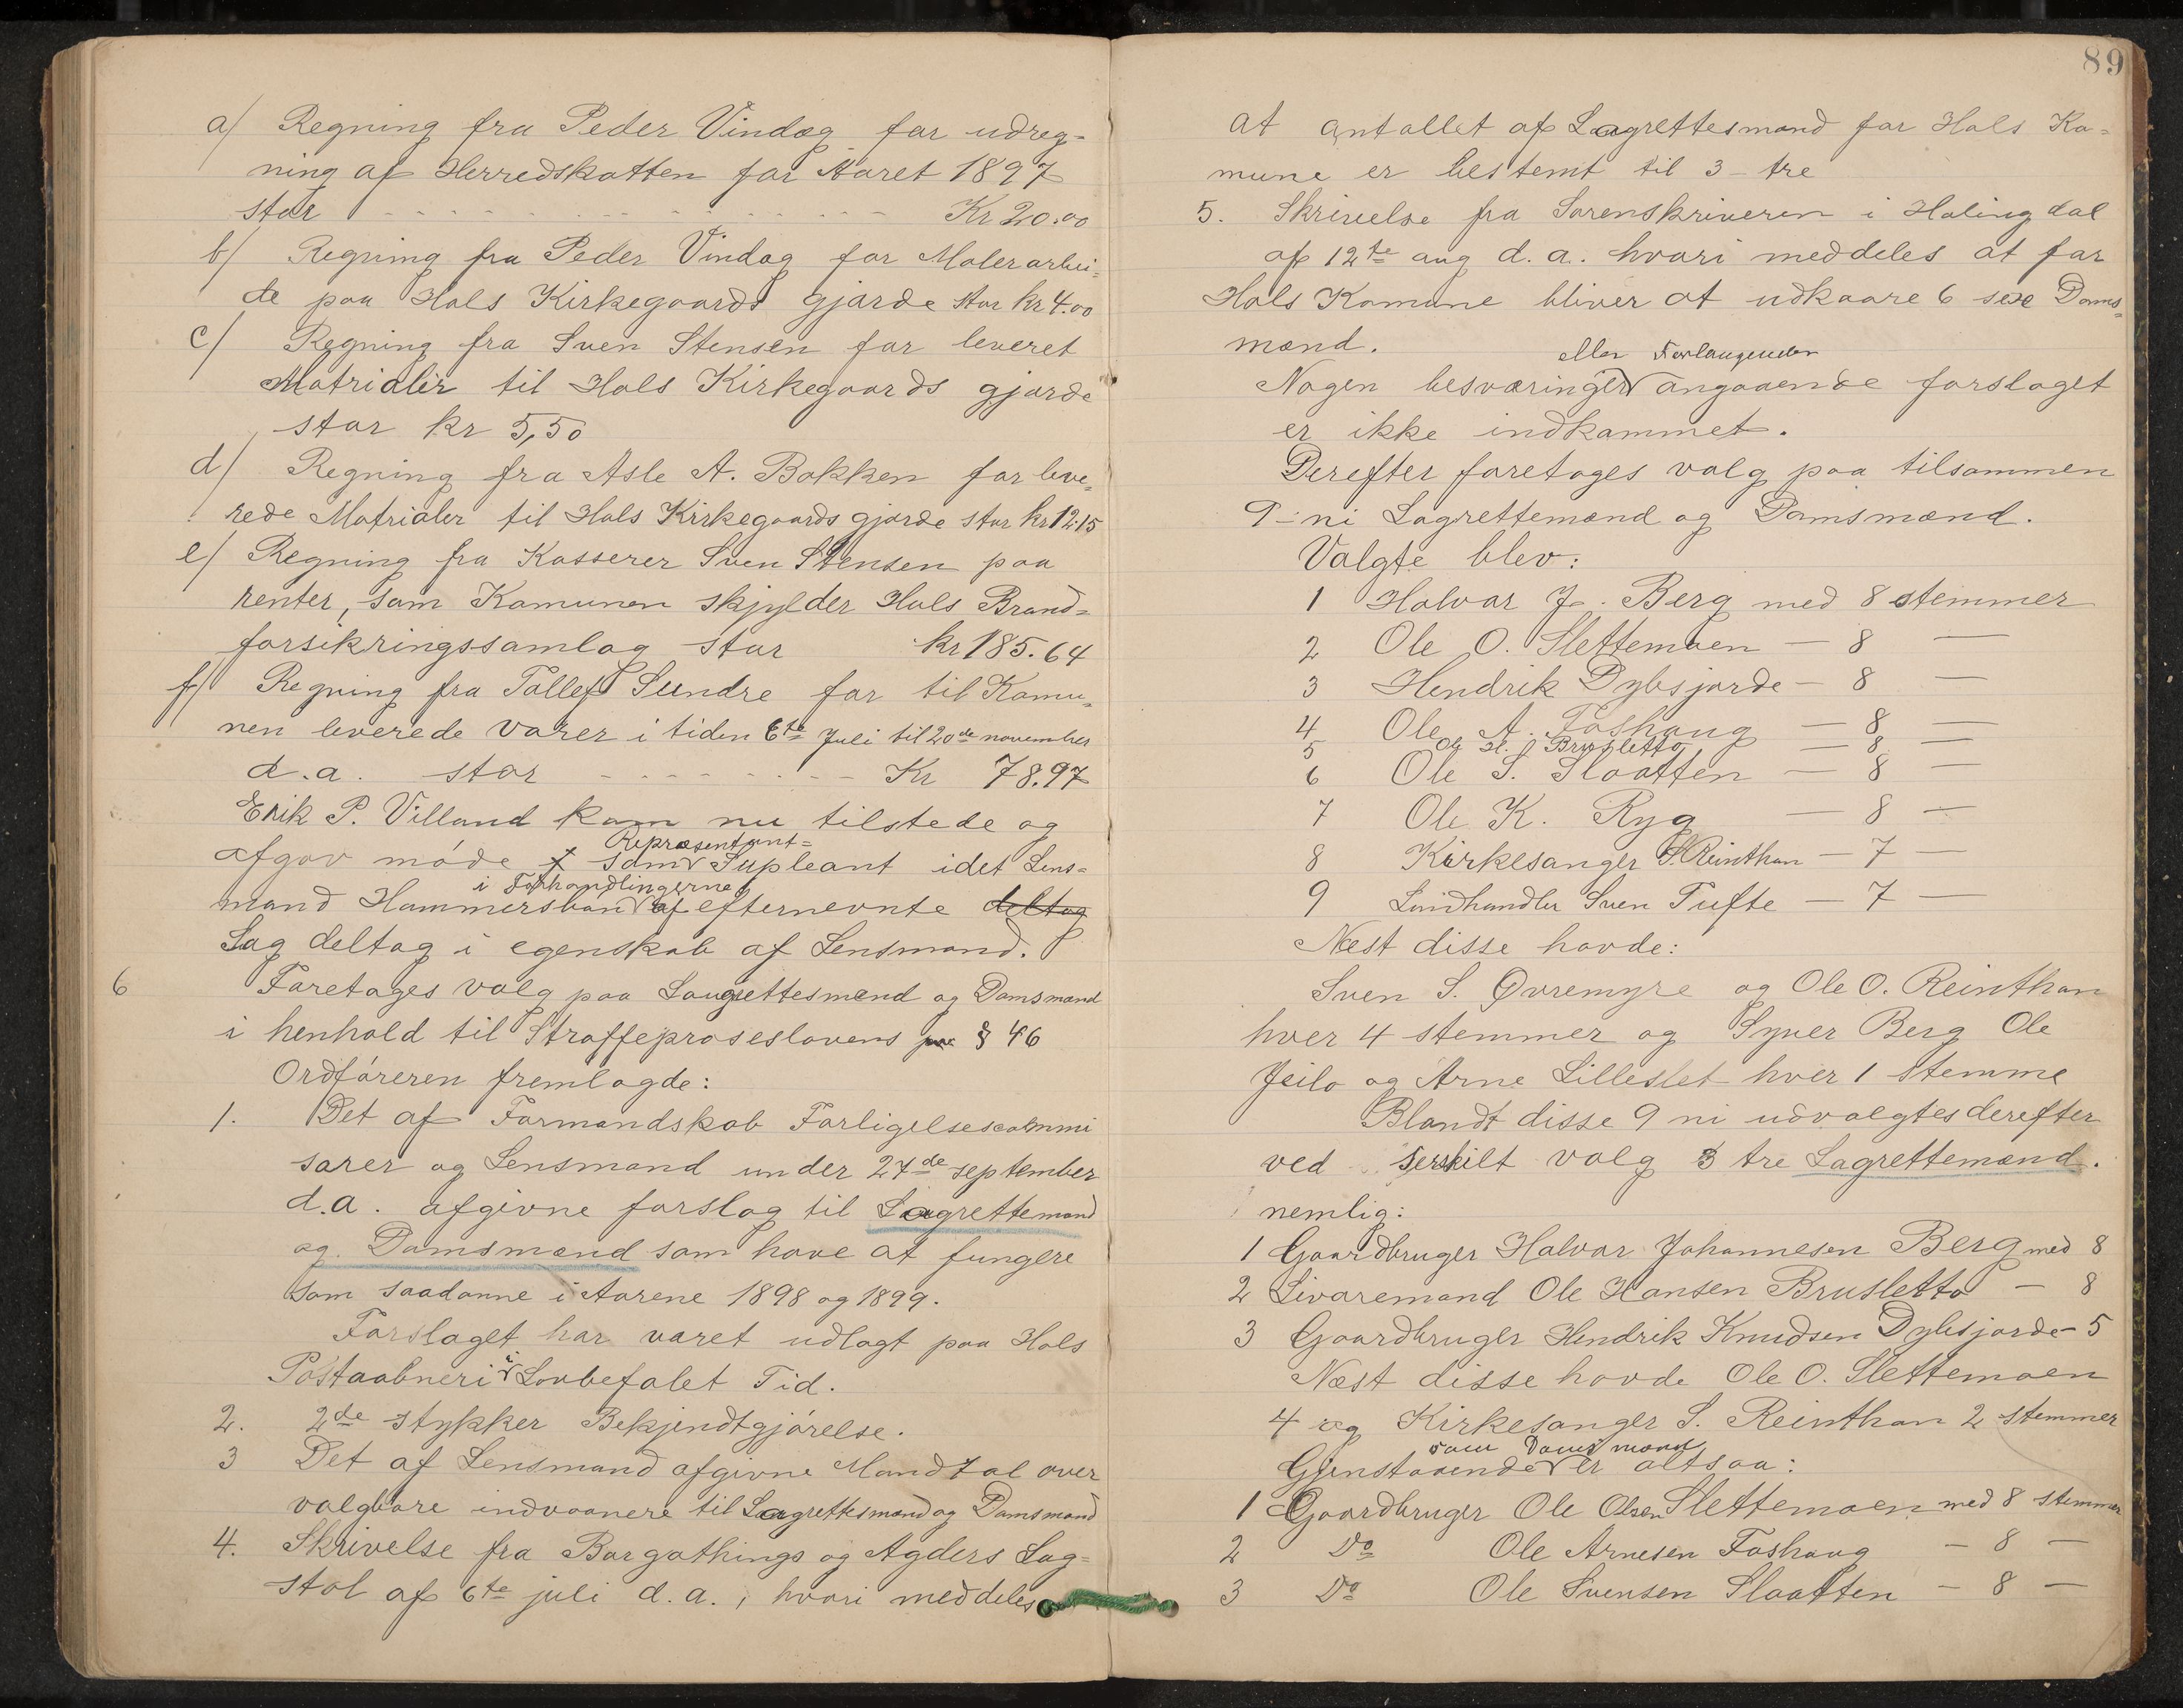 a/ Regning fra Peder Vindag for udreg-
ning af Herredskatten for Aaret 1897
stor - - - - - - - - - - Kr 20.00
b/ Regning fra Peder Vindag for Malerarbei-
de paa Hols Kirkegaards gjærde stor kr 4.00
c/ Regning fra Sven Stensen for leveret
Matrialer til Hols Kirkegaards gjærde
stor kr 5,50
d/ Regning fra Asle A. Bakken for leve-
rede Matrialer til Hols Kirkegaards gjærde stor kr 12.15
e/ Regning fra Kasserer Sven Stensen paa
renter, som Komunen skjylder Hols Brand-
forsikringssamlag stor kr 185.64
f/ Regning fra Tollef Sundre for til Komu-
nen leverede varer i tiden 6te Juli til 20de november
d.a. stor - - - - - - - Kr 78.97
Erik P. Villand kom nu tilstede og
Repræsentant=
afgav møde som Supleant idet Lens-
i Forhandlingerne
mand Hammersbøn af efternevnte deltog
Sag deltog i egenskab af Lensmand.
6 Foretages valg paa Laugrettesmænd og Domsmænd
i henhold til Straffeproseslovens § 46
Ordføreren fremlagde:
1. Det af Formandskab Forligelsescommi
særer og Lensmand under 24de september
d.a. afgivne forslag til Lagrettemænd
og Domsmænd som have at fungere
som saadanne i Aarene 1898 og 1899.
Forslaget har været udlagt paa Hols
Postaabneri i Lovbefalet Tid.
2. 2de stykker Bekjendtgjørelse.
3 Det af Lensmand afgivne Mandtal over
valgbare indvaanere til Lagrettesmænd og Domsmænd
4. Skrivelse fra Borgathings og Agders Lag-
stol af 6te juli d.a., hvori meddeles
89
at antallet af Lagrettesmænd for Hols Ko-
mune er bestemt til 3 - tre
5. Skrivelse fra Sorenskriveren i Halingdal
af 12te aug d.a. hvori meddeles at for
Hols Komune bliver at udkaare 6 sex Doms-
mænd.
eller Forlangender
Nogen besværinger angaaende forslaget
er ikke indkommet.
Derefter foretages valg paa tilsammen
9 - ni Lagrettemænd og Domsmænd.
Valgte blev:
1 Halvor J. Berg med 8 stemmer
2 Ole O. Slettemoen — 8 —
3 Hendrik Dybsjorde — 8 —
4 Ole A. Foshaug — 8 —
5 Ole H. Brusletto — 8 —
6 Ole S. Slaatten — 8 —
7 Ole K. Ryg — 8 —
8 Kirkesanger S. Reinthon — 7 —
9 Landhandler Sven Tufte — 7 —
Næst disse havde:
Sven S. Øvremyre og Ole O. Reinthon
hver 4 stemmer og Syver Berg Ole
Jeilo og Arne Lilleslet hver 1 stemme
Blandt disse 9 ni udvalgtes derefter
ved serskilt valg 3 tre Lagrettemænd.
nemlig:
1 Gaardbruger Halvor Johannesen Berg med 8
2 Livaremand Ole Hansen Brusletto — 8
3 Gaardbruger Hendrik Knudsen Dybsjorde - 5
Næst disse havde Ole O. Slettemoen
4 og Kirkesanger S. Reinthon 2 stemmer
som Domsmænd
Gjenstaaende er altsaa:
1 Gaardbruger Ole Olsen Slettemoen med 8 stemmer
2 Do Ole Arnesen Foshaug — 8 —
3 Do Ole Svensen Slaatten — 8 —